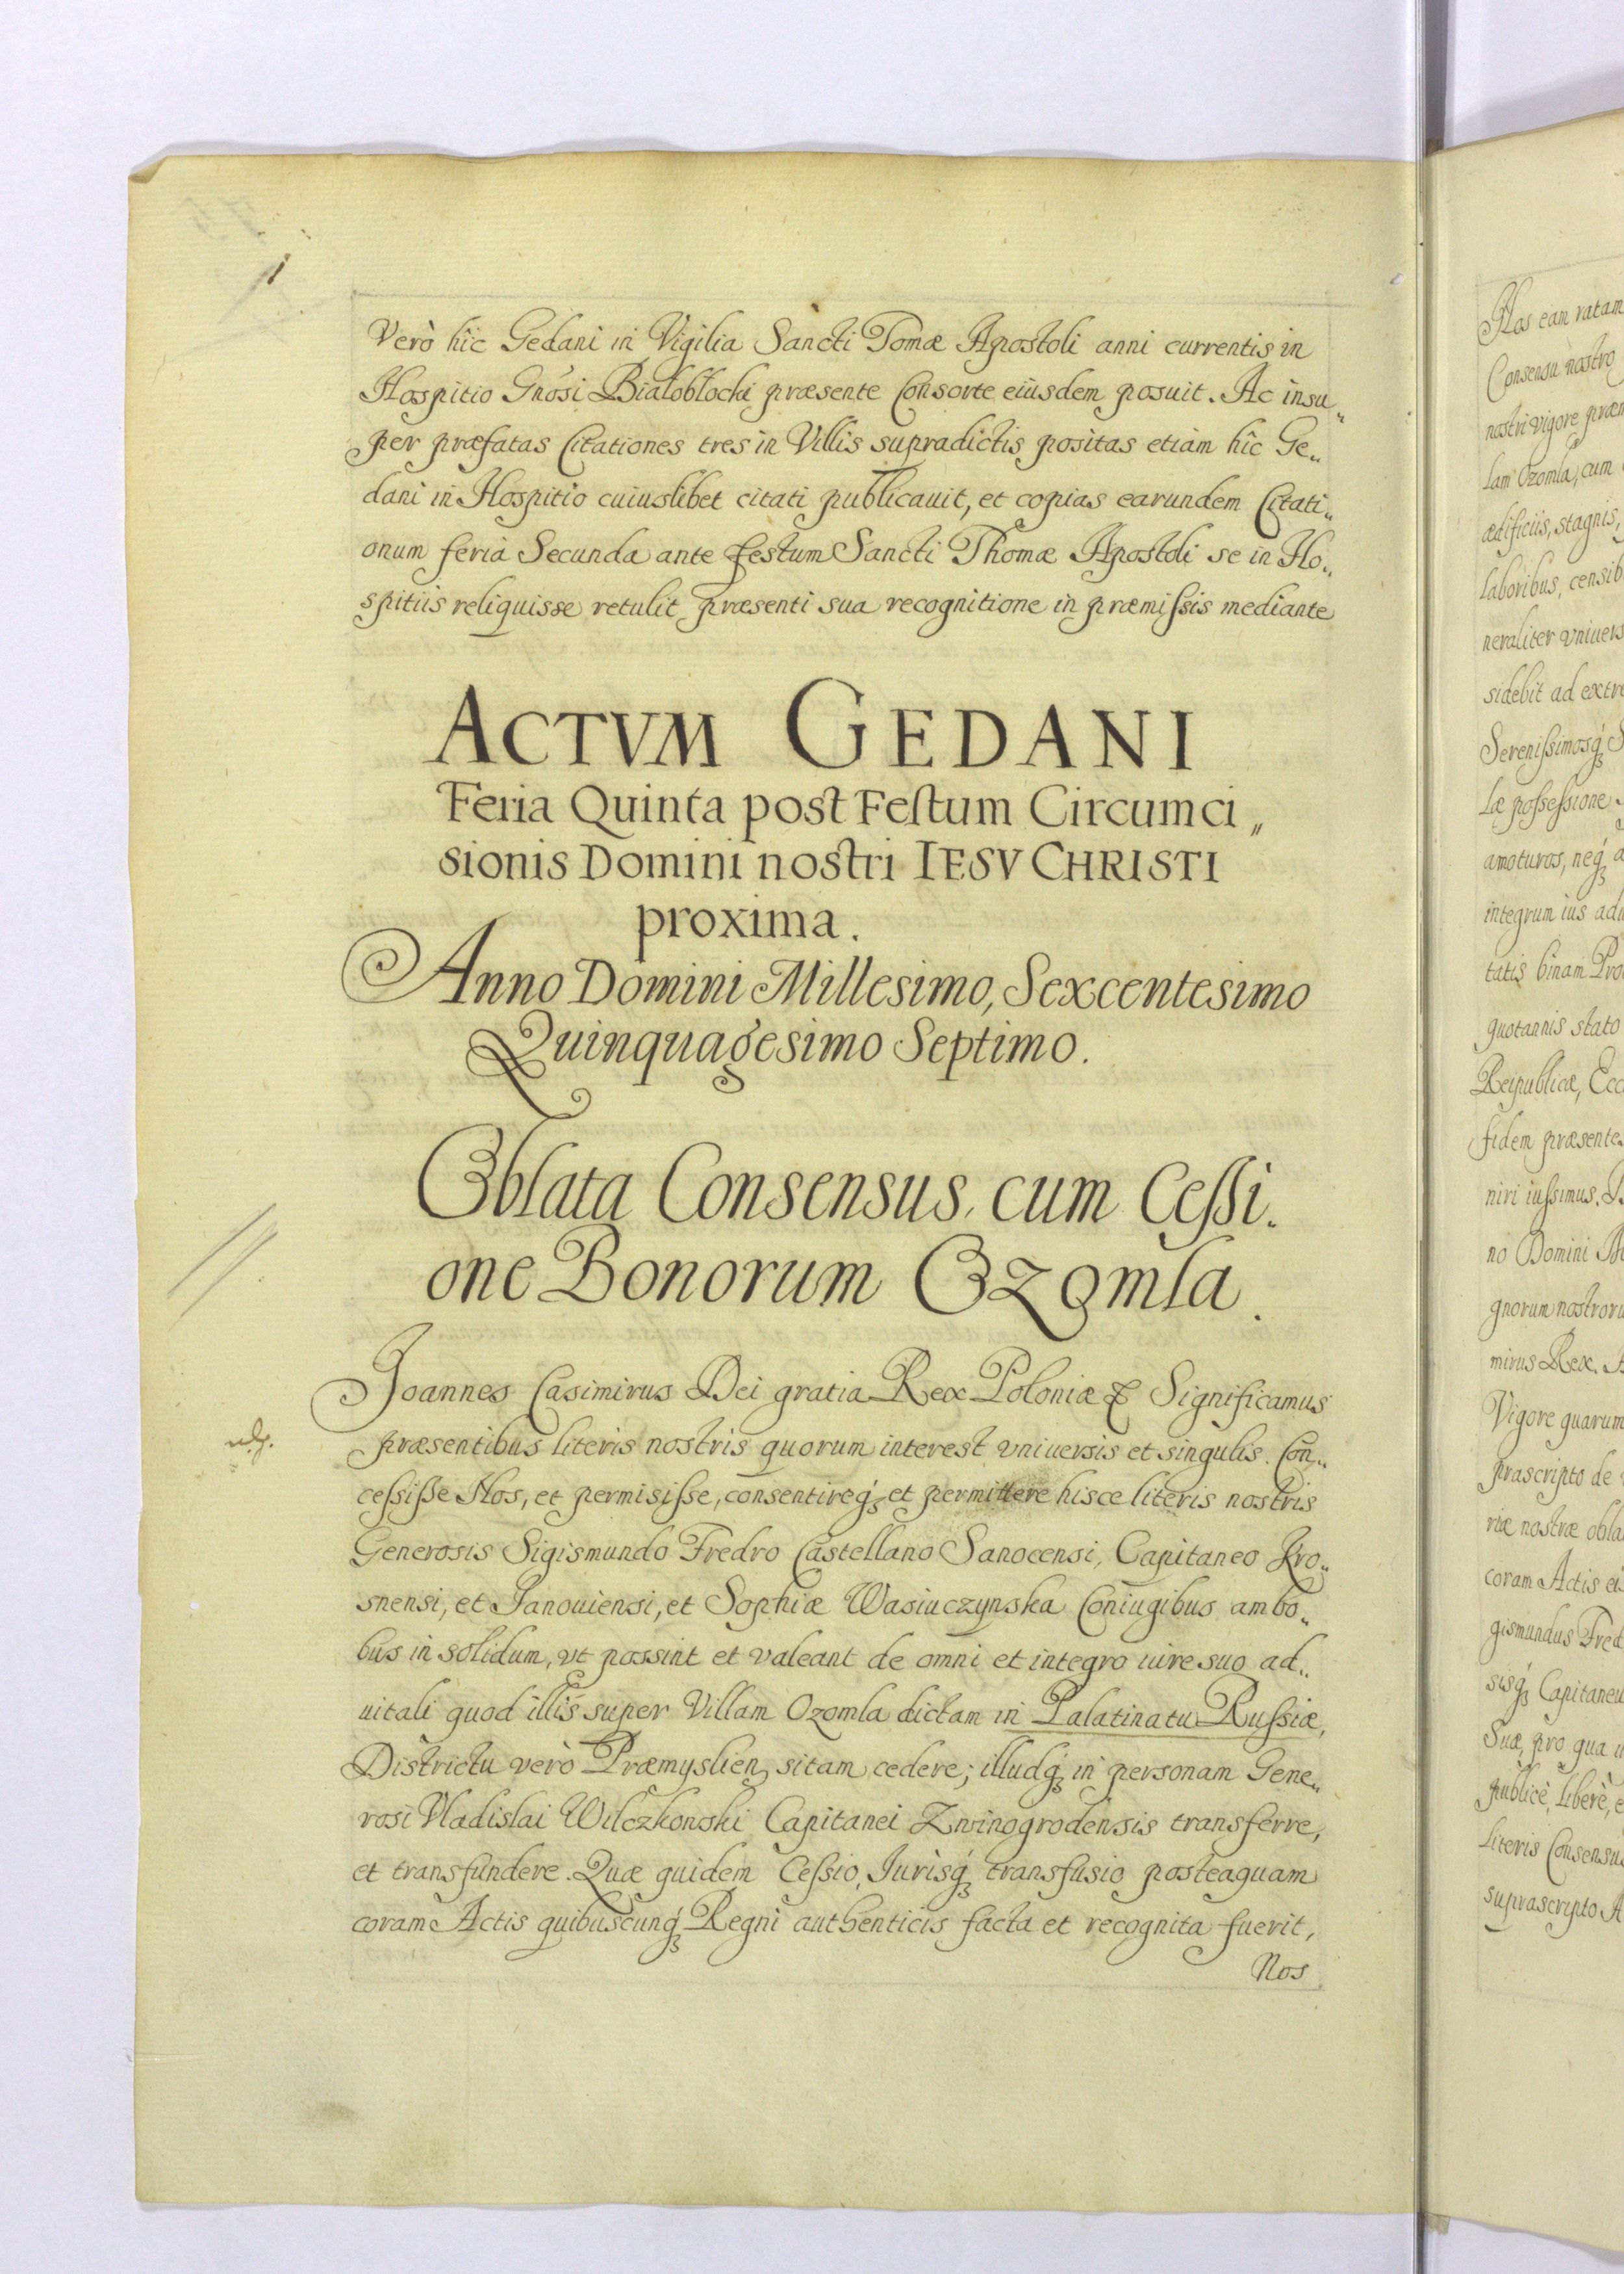 Verò hîc Gedani in Vigilia Sancti Tomæ Apostoli anni currentis in
Hospitio Gnosi Białobłocki præsente Consorte eiusdem posuit. Ac insu„
per præfatas Citationes tres in Villis supradictis positas etiam hîc Ge„
dani in Hospitio cuiuslibet citati publicauit, et copias earundem Citati„
onum feria Secunda ante festum Sancti Thomæ Apostoli se in Ho„
spitiis reliquisse retulit præsenti sua recognitione in præmissis mediante
ACTVM GEDANI
Feria Quinta post Festum Circumci„
sionis Domini nostri IESV CHRISTI
proxima.
Anno Domini Millesimo, Sexcentesimo
Quinquagesimo Septimo.
Oblata Consensus, cum Cessi.
one Bonorum Ozomla.
Joannes Casimirus Dei gratia Rex Poloniæ & Significamus
præsentibus literis nostris quorum interest vniuersis et singulis. Con„
cessisse Nos, et permisisse, consentireq́ꝫ et permittere hisce literis nostris
Generosis Sigismundo Fredro Castellano Sanocensi, Capitaneo Kro„
snensi, et Janouiensi, et Sophiæ Wasiuczynska Coniugibus ambo„
bus in solidum, vt possint et valeant de omni et integro iure suo ad„
uitali quod illis super Villam Ozomla dictam in Palatinatu Russiæ,
Districtu verò Præmyslien sitam cedere; illudq́ꝫ in personam Gene„
rosi Vladislai Wilczkowski Capitanei Zwinogrodensis transferre,
et transfundere. Quæ quidem Cessio, Jurisq́ꝫ transfusio posteaquam
coram Actis quibuscunq́ꝫ Regni authenticis facta et recognita fuerit,
Nos
Nos eam ratam
Consensu nostro
nostri vigore præm
lam Ozomla, cum
ædificiis, stagnis,
laboribus, censib
neraliter vniuers
sidebit ad extre
Serenissimosq́ꝫ S
læ possessione
amoturos, neq́ꝫ a
integrum ius adu
tatis binam Pro
quotannis stato
Reipublicæ, Ecc
fidem præsentes
niri iussimus. D
no Domini M
gnorum nostroru
mirus Rex. A
Vigore quarum
præscripto de
riæ nostræ obla
coram Actis ei
gismundus Fred
sisq́ꝫ Capitaneu
Suæ, pro qua u
publicè, liberè, e
literis Consensus
suprascripto A